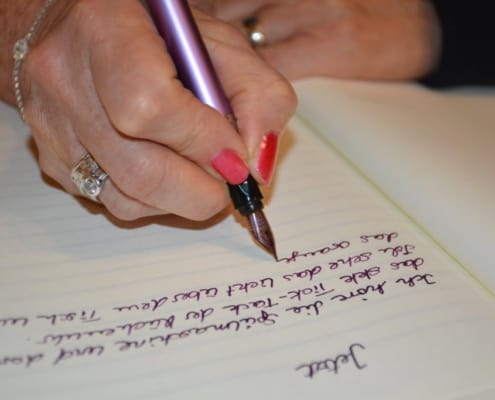 Jetzt
Ich höre die Spülmaschine und das
das Tick-Tack der Küchenuhr.
Ich sehe das Licht über dem Tisch un
das orange